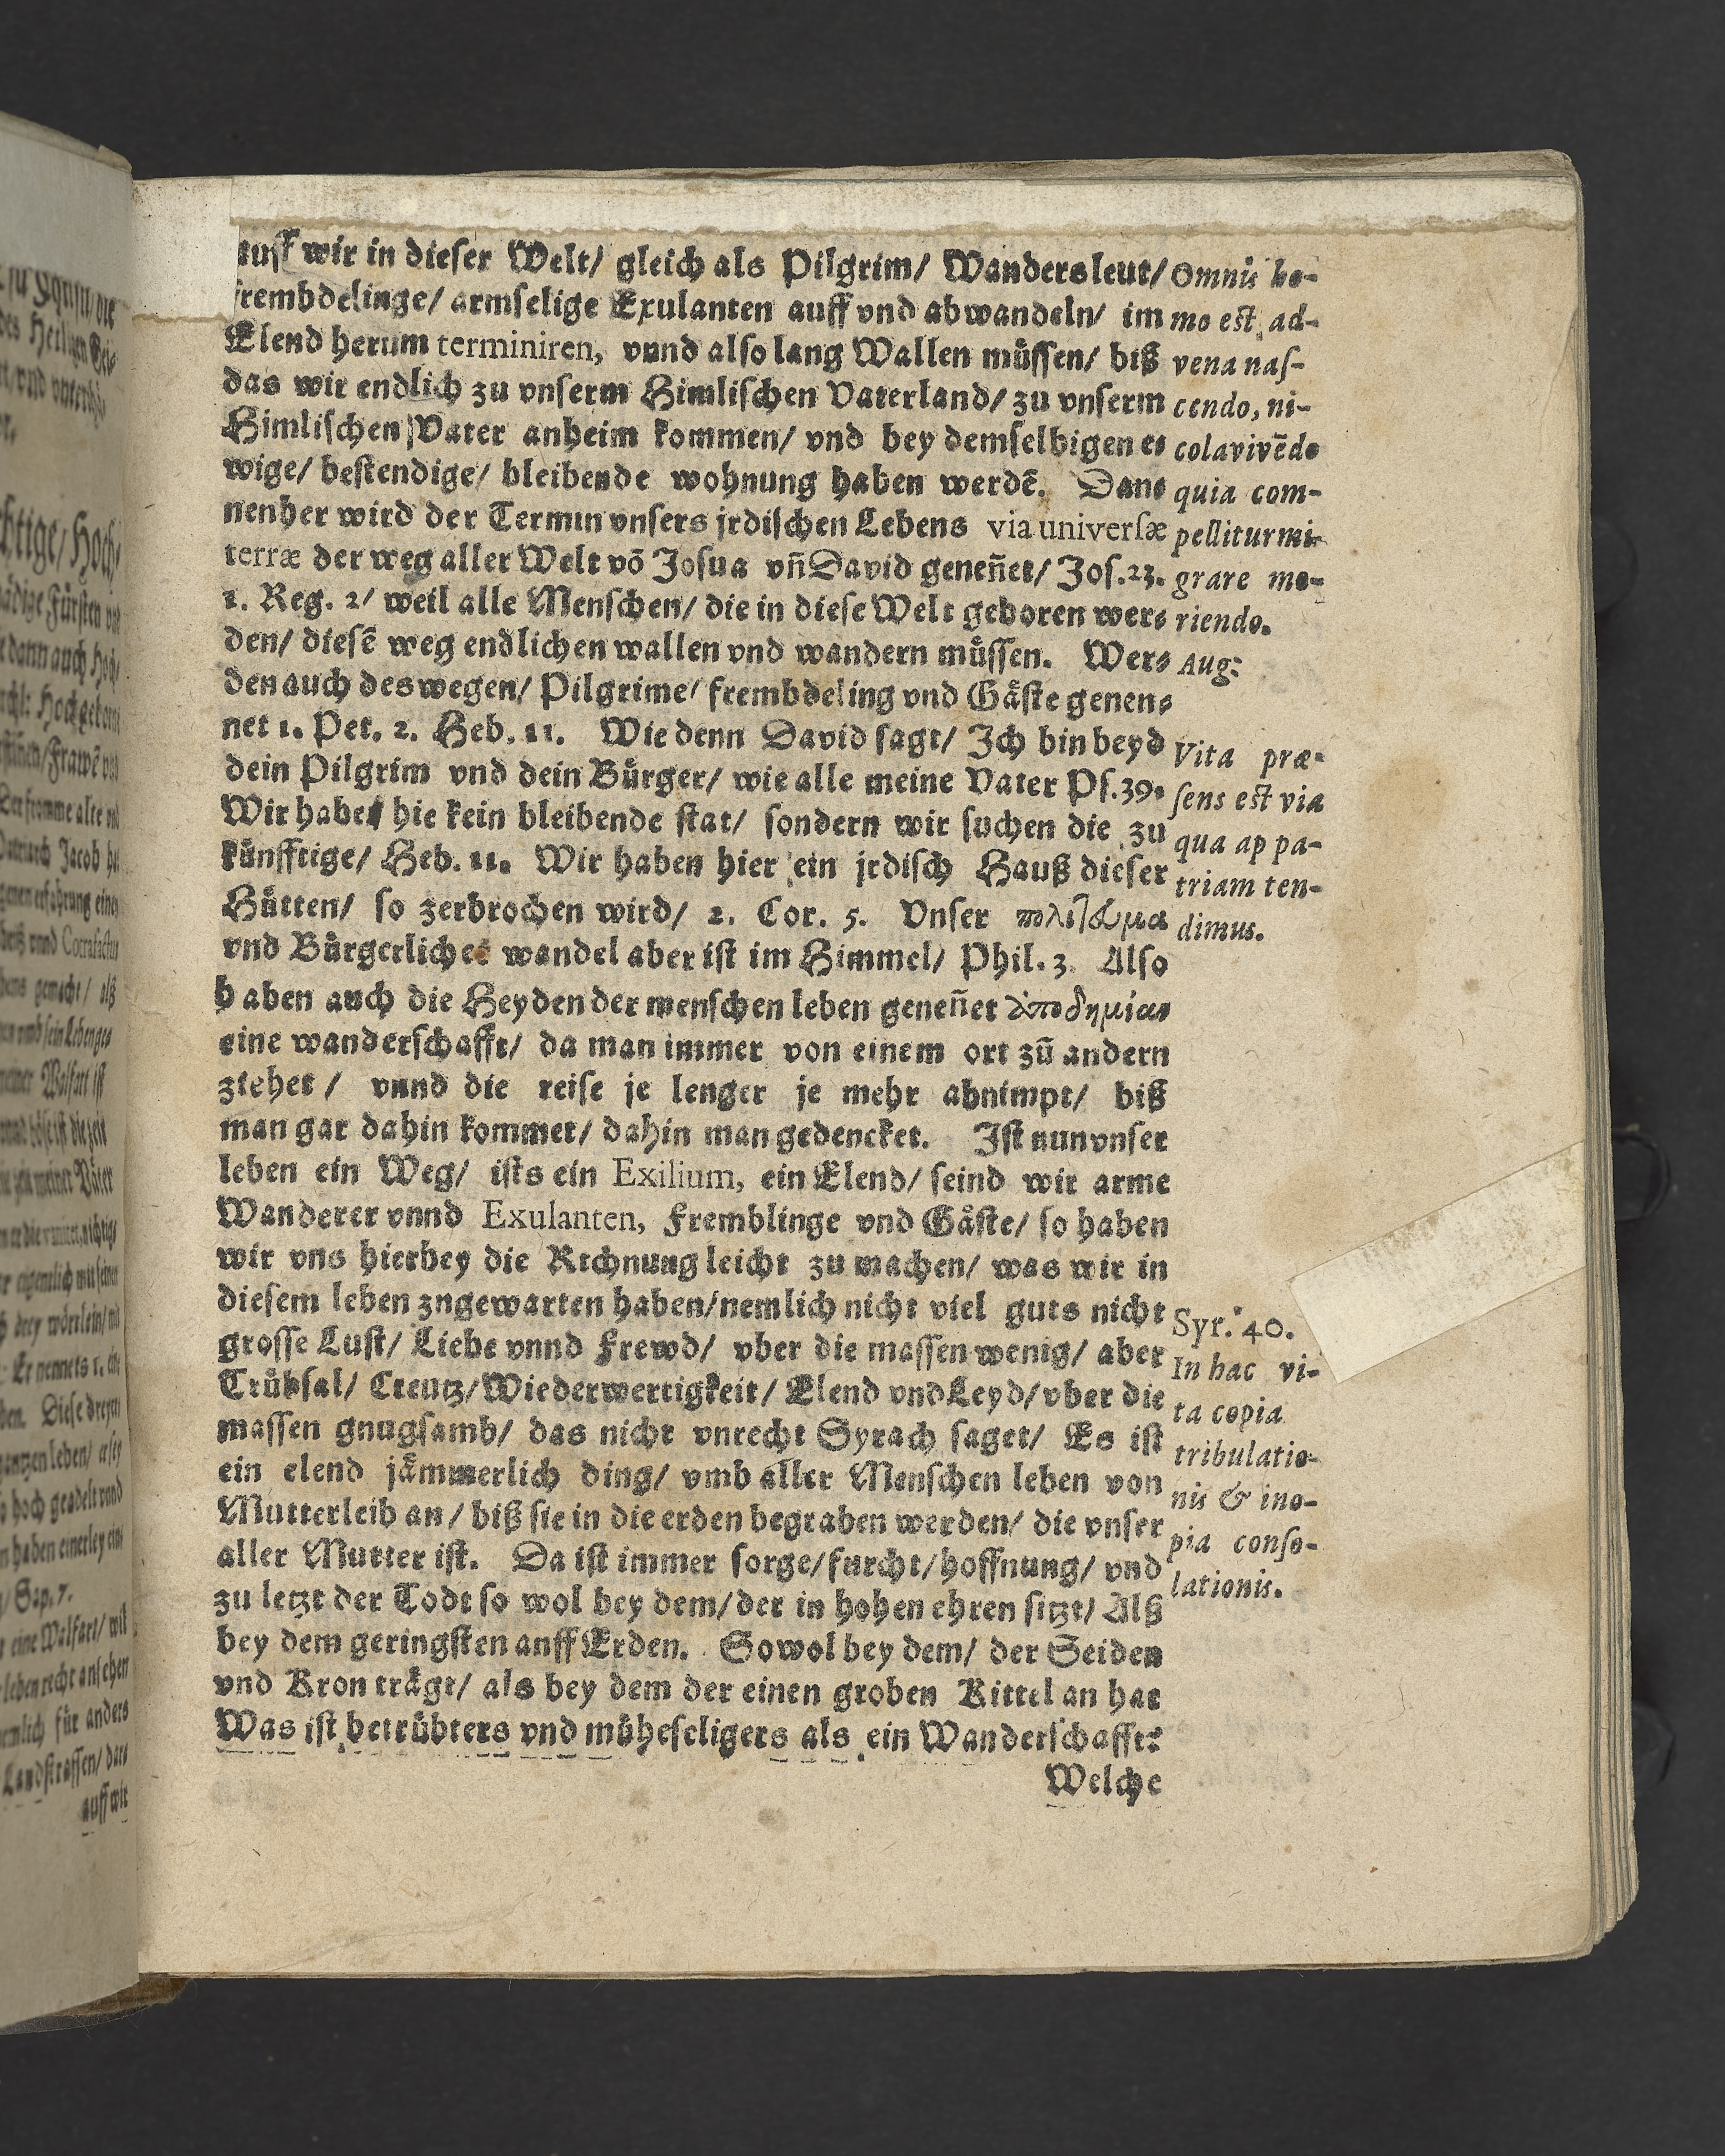 auff wir in dieser Welt/ gleich als Pilgrim/ Wandersleut/
frembdelinge/ armselige Exulanten auff vnd abwandeln/ im
Elend herum terminiren, vnnd also lang Wallen müssen/ biß
das wir endlich zu vnserm Himlischen Vaterland/ zu vnserm
Himlischen Vater anheim kommen/ vnd bey demselbigen e⸗
wige/ bestendige/ bleibende wohnung haben werdē. Dan⸗
nenher wird der Termin vnsers jrdischen Lebens via universæ
terræ der weg aller Welt võ Josua vñ David geneñet/ Jos.23.
1. Reg. 2/ weil alle Menschen/ die in diese Welt geboren wer⸗
den/ diesē weg endlichen wallen vnd wandern müssen. Wer⸗
den auch deswegen/ Pilgrime/ frembdeling vnd Gäste genen⸗
net 1. Pet. 2. Heb. 11. Wie denn David sagt/ Ich bin beyd
dein Pilgrim vnd dein Bürger/ wie alle meine Vater Ps.39.
Wir haben hie kein bleibende stat/ sondern wir suchen die zu
künfftige/ Heb. 11. Wir haben hier ein jrdisch Hauß dieser
Hütten/ so zerbrochen wird/ 2. Cor. 5. Vnser πολίτευμα
vnd Bürgerlicher wandel aber ist im Himmel/ Phil. 3. Also
haben auch die Heyden der menschen leben geneñet ἀποδημίαν
eine wanderschafft/ da man immer von einem ort zū andern
ziehet / vnnd die reise je lenger je mehr abnimpt/ biß
man gar dahin kommet/ dahin man gedencket. Ist nun vnser
leben ein Weg/ ists ein Exilium, ein Elend/ seind wir arme
Wanderer vnnd Exulanten, Fremblinge vnd Gäste/ so haben
wir vns hierbey die Rechnung leicht zu machen/ was wir in
diesem leben zngewarten haben/ nemlich nicht viel guts nicht
grosse Lust/ Liebe vnnd Frewd/ vber die massen wenig/ aber
Trübsal/ Creutz/ Wiederwertigkeit/ Elend vnd Leyd/ vber die
massen gnugsamb/ das nicht vnrecht Syrach saget/ Es ist
ein elend jämmerlich ding/ vmb aller Menschen leben von
Mutterleib an/ biß sie in die erden begraben werden/ die vnser
aller Mutter ist. Da ist immer sorge/ furcht/ hoffnung/ vnd
zu letzt der Todt so wol bey dem/ der in hohen ehren sitzt/ Alß
bey dem geringsten anff Erden. Sowol bey dem/ der Seiden
vnd Kron trägt/ als bey dem der einen groben Kittel an hat
Was ist betrübters vnd müheseligers als ein Wanderschafft?
Welche
Omnis ho-
mo est ad-
vena nas-
cendo, ni-
cola vivēdo
quia com-
pellitur mi-
grare mo-
riendo.
Aug:
Vita præ-
sens est via
qua ap pa-
triam ten-
dimus.
Syr. 40.
In hac vi-
ta copia
tribulatio-
nis & ino-
pia conso-
lationis.